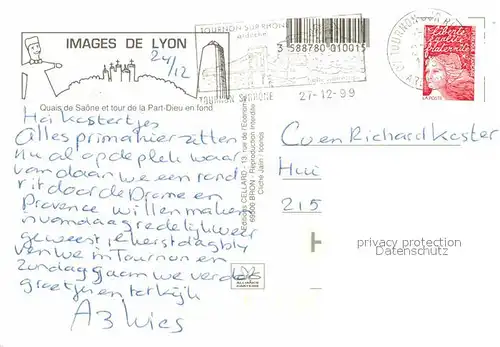 IMAGES DE LYON
24/12
Quais de Saône et tour de la Part-Dieu en fond
Hoi kastertjes
Alles prima hier zitten
nu al op de plek waar
van daar we een rond
rit door de Drome en
Provence willen maken
vandaag redelijk weer
geweest 1e kerstdag bly
ven we in Tournon en
Zondag gaan we verder
groetjes en tot kijk
TOURNON SUR RHONE
ardèche
TOURNON S/RHONE
27-12-99
3 588780 010015
Editions CELLARD - 13, rue de l'Epinoni
69500 BRON - Reproduction interdite
ALLIANCE
CARTEAM
Liberté
Egalité
Fraternité
LA POSTE
C en Richard Kaster
Hui
215
privacy protection
Datenschutz